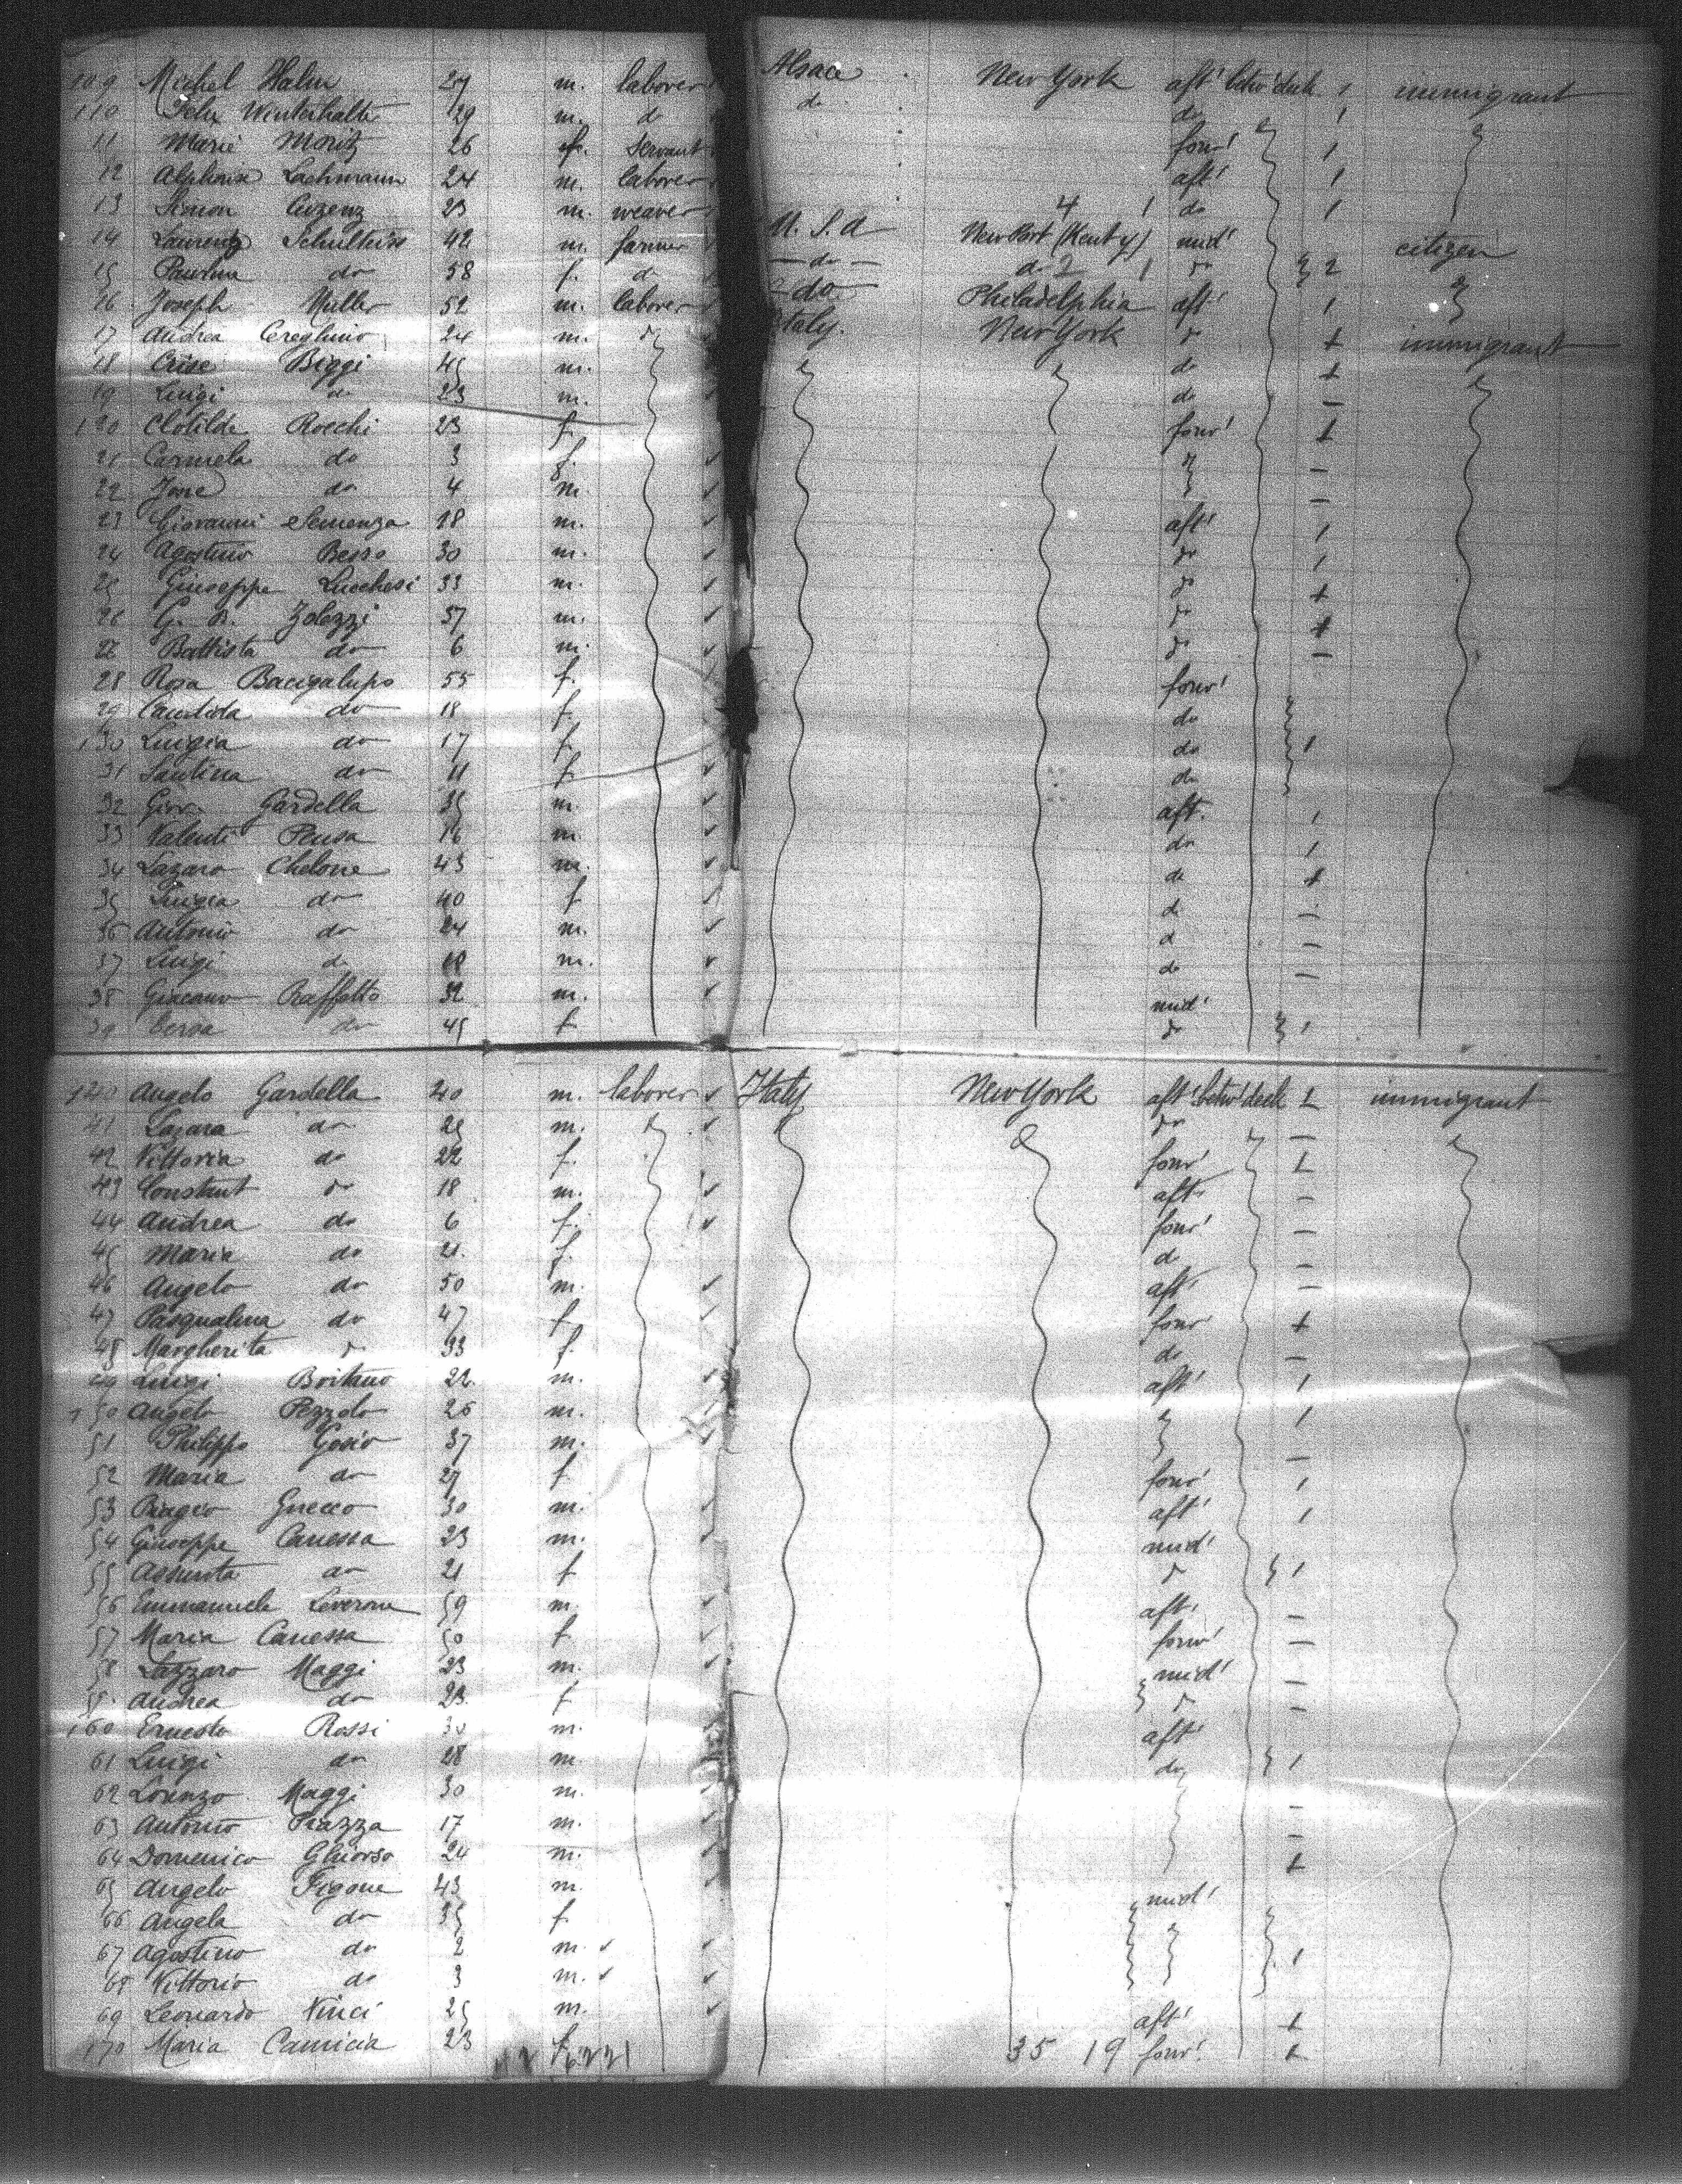 109 Michel Hahn 27 m. laborer Alsace New York aft' betw' deck 1 immigrant
110 Felix Winterhalter 29 m. d do do 1
11 Marie Moritz 26 f. servant forw' 1
12 Alphonse Lachmann 24 m. laborer aft' 1
13 Simon 23 m. weaver 4 1 do 1
14 Laurenz Schultheiss 42 m. farmer U. S. A New Port (Kenty) mid' citizen
15 Paulina do 58 f. do do do 2 1 do 2
16 Joseph Muller 52 m. laborer do Philadelphia aft' 1
17 Andrea Cereghino 24 m. do Italy. New York do + immigrant
18 Biggi 45 m. do +
19 Luigi do 23 m. do –
120 Clotilde Rocchi 23 f. forw' +
21 Carmela do 3 f. –
22 do 4 m. –
23 Giovanni Semenza 18 m. aft' 1
24 Agostino Besso 30 m. do 1
25 Giuseppe Lucchesi 33 m. do +
26 G. B. Zolezzi 37 m. do +
27 Battista do 6 m. do –
28 Rosa Bacigalupo 55 f. forw'
29 Candida do 18 f. do
130 Luigia do 17 f. do 1
31 Santina do 11 f. do
32 Giov. Gardella 35 m. aft. 1
33 Valenti Pensa 16 m. do 1
34 Lazaro Chelone 43 m. do +
35 Luigia do 40 f do –
36 Antonio do 24 m. d –
37 Luigi do 18 m. do –
38 Giacomo Raffetto 32 m. mid'
39 do 45 f do 1
140 Angelo Gardella 40 m. laborer Italy New York aft' betw' deck 1 immigrant
41 Lazara do 25 m. do –
42 Vittoria do 22 f. forw' 1
43 Constant do 18 m. aft' –
44 Andrea do 6 f. forw' –
45 Maria do 21. f. do –
46 Angelo do 50 m. aft' –
47 Pasqualina do 47 f. forw' +
48 Margherita do 33 f. do –
49 Luigi Boitano 22. m. aft' 1
150 Angelo Pezzolo 26 m. 1
51 Philippo Gosio 37 m. –
52 Maria do 27 f forw' 1
53 Biagio Gnecco 30 m. aft' 1
54 Giuseppe Canessa 23 m. mid'
55 Assunta do 21 f do 1
56 Emmanuele Leverone 59 m. aft' –
57 Maria Canessa 50 f forw' –
58 Lazzaro Maggi 23 m. mid' –
59 Andrea do 23. f do –
160 Ernesto Rossi 30 m. aft'
61 Luigi do 28 m do 1
62 Lorenzo Maggi 30 m. –
63 Antonio Piazza 17 m. –
64 Domenico Ghiorso 24 m. +
65 Angelo Figone 43 m mid'
66 Angela do 35 f
67 Agostino do 2 m. 1
68 Vittorio do 3 m.
69 Leonardo Vinci 25 m. aft' +
170 Maria Camicia 23 f 35 19 forw' +